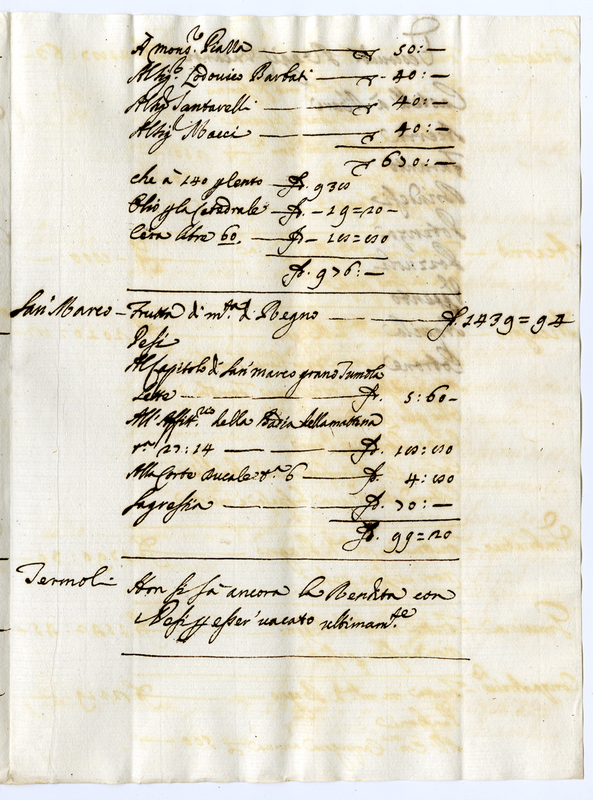 A mons.r Pialla — 50:—
Al Sig.r Lodovico Barbati — 40:—
Al Sig.r Santarelli — 40:—
Al Sig.r Macci — 40:—
630:—
che à 140 p cento — 930
Olio p la Catedrale — 19=20 —
Cera libre 60. —
936:—
San Marco — Frutta di m.ta di Regno — 1439=94
Pesi
Al Capitolo di San Marco grano Tumola
sette — 5:60 —
All' Affitt.rio della Badia della mattina
r.a 27:14 —
Alla Corte Ducale r.a 6 — 4:
Sagrestia — 70:—
99=20
Termoli
Non si sà ancora la Rendita con
Pesi p esser' vacato ultimam.te